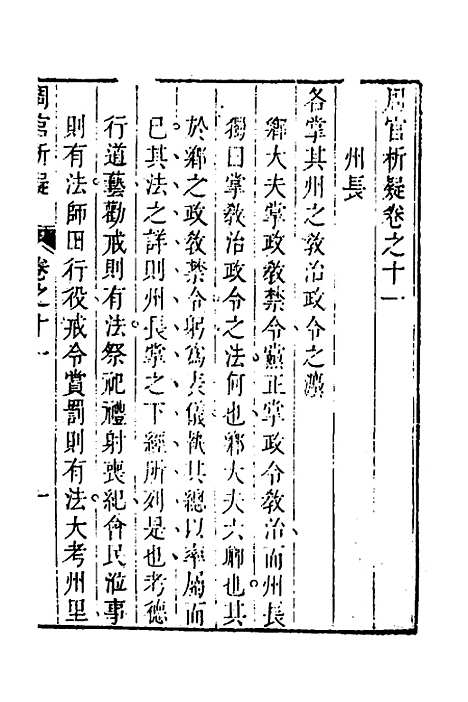 周官析疑卷之十一
州長
各掌其州之敎治政令之灋
鄉大夫掌政敎禁令黨正掌政令敎治而州長
獨曰掌敎治政令之法何也鄉大夫六卿也其
於鄉之政敎禁令躬爲表儀執其總以率屬而
已其法之詳則州長掌之下經所列是也考德
行道藝勸戒則有法祭祀禮射喪紀會民涖事
則有法師田行役戒令賞罰則有法大考州里
周官析疑 卷之十一 一